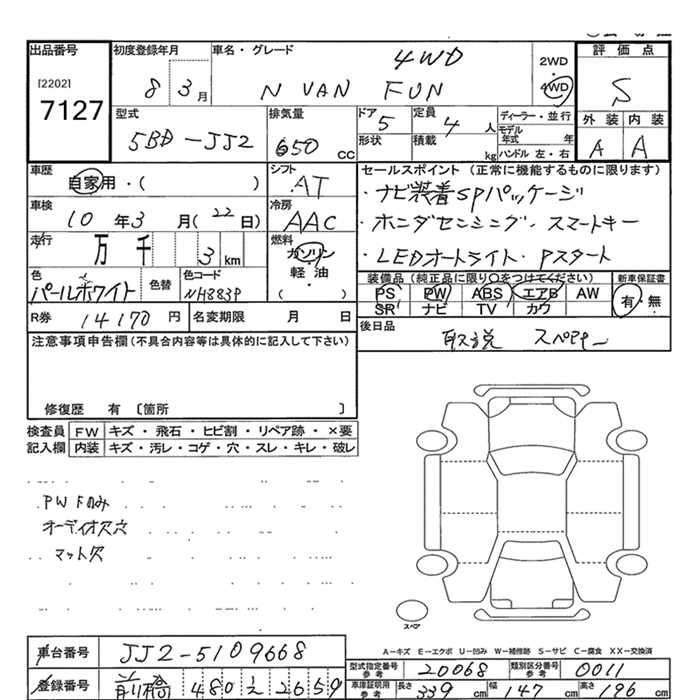 出品番号
[2202]
7127
初度登録年月
8 3月
車名・グレード
4WD
N VAN FUN
2WD
4WD
評価点
S
外装 内装
A A
型式
5BD-JJ2
排気量
650 CC
ドア
5
形状
定員
4 人
積載
kg
ディーラー・並行
モデル年式 年
ハンドル 左・右
車歴
自家用・( )
シフト
AT
車検
10年3月(22日)
冷房
AAC
走行
万 千 3 km
燃料
ガソリン
軽・油
( )
色
パールホワイト
色替
色コード
NH883P
R券 14170円
名変期限 月 日
セールスポイント(正常に機能するものに限ります)
・ナビ装着SPパッケージ
・ホンダセンシング・スマートキー
・LEDオートライト・Pスタート
装備品(純正品に限り○をつけてください)
PS PW ABS エアB AW
SR ナビ TV カワ
新車保証書
有・無
後日品
取説 スペアキー
注意事項申告欄(不具合内容等は具体的に記入して下さい)
修復歴 有 〔箇所 〕
検査員記入欄
FW キズ・飛石・ヒビ割・リペア跡・×要
内装 キズ・汚レ・コゲ・穴・スレ・キレ・破レ
PW Fのみ
オーディオ欠穴
マット欠
スペア
A-キズ E-エクボ U-凹み W-補修跡 S-サビ C-腐食 XX-交換済
車台番号
JJ2-5109668
登録番号
前橋 480 と 2659
型式指定番号参考
20068
類別区分番号参考
0011
車庫証明用参考
長さ 339 cm
幅 147 cm
高さ 196 cm